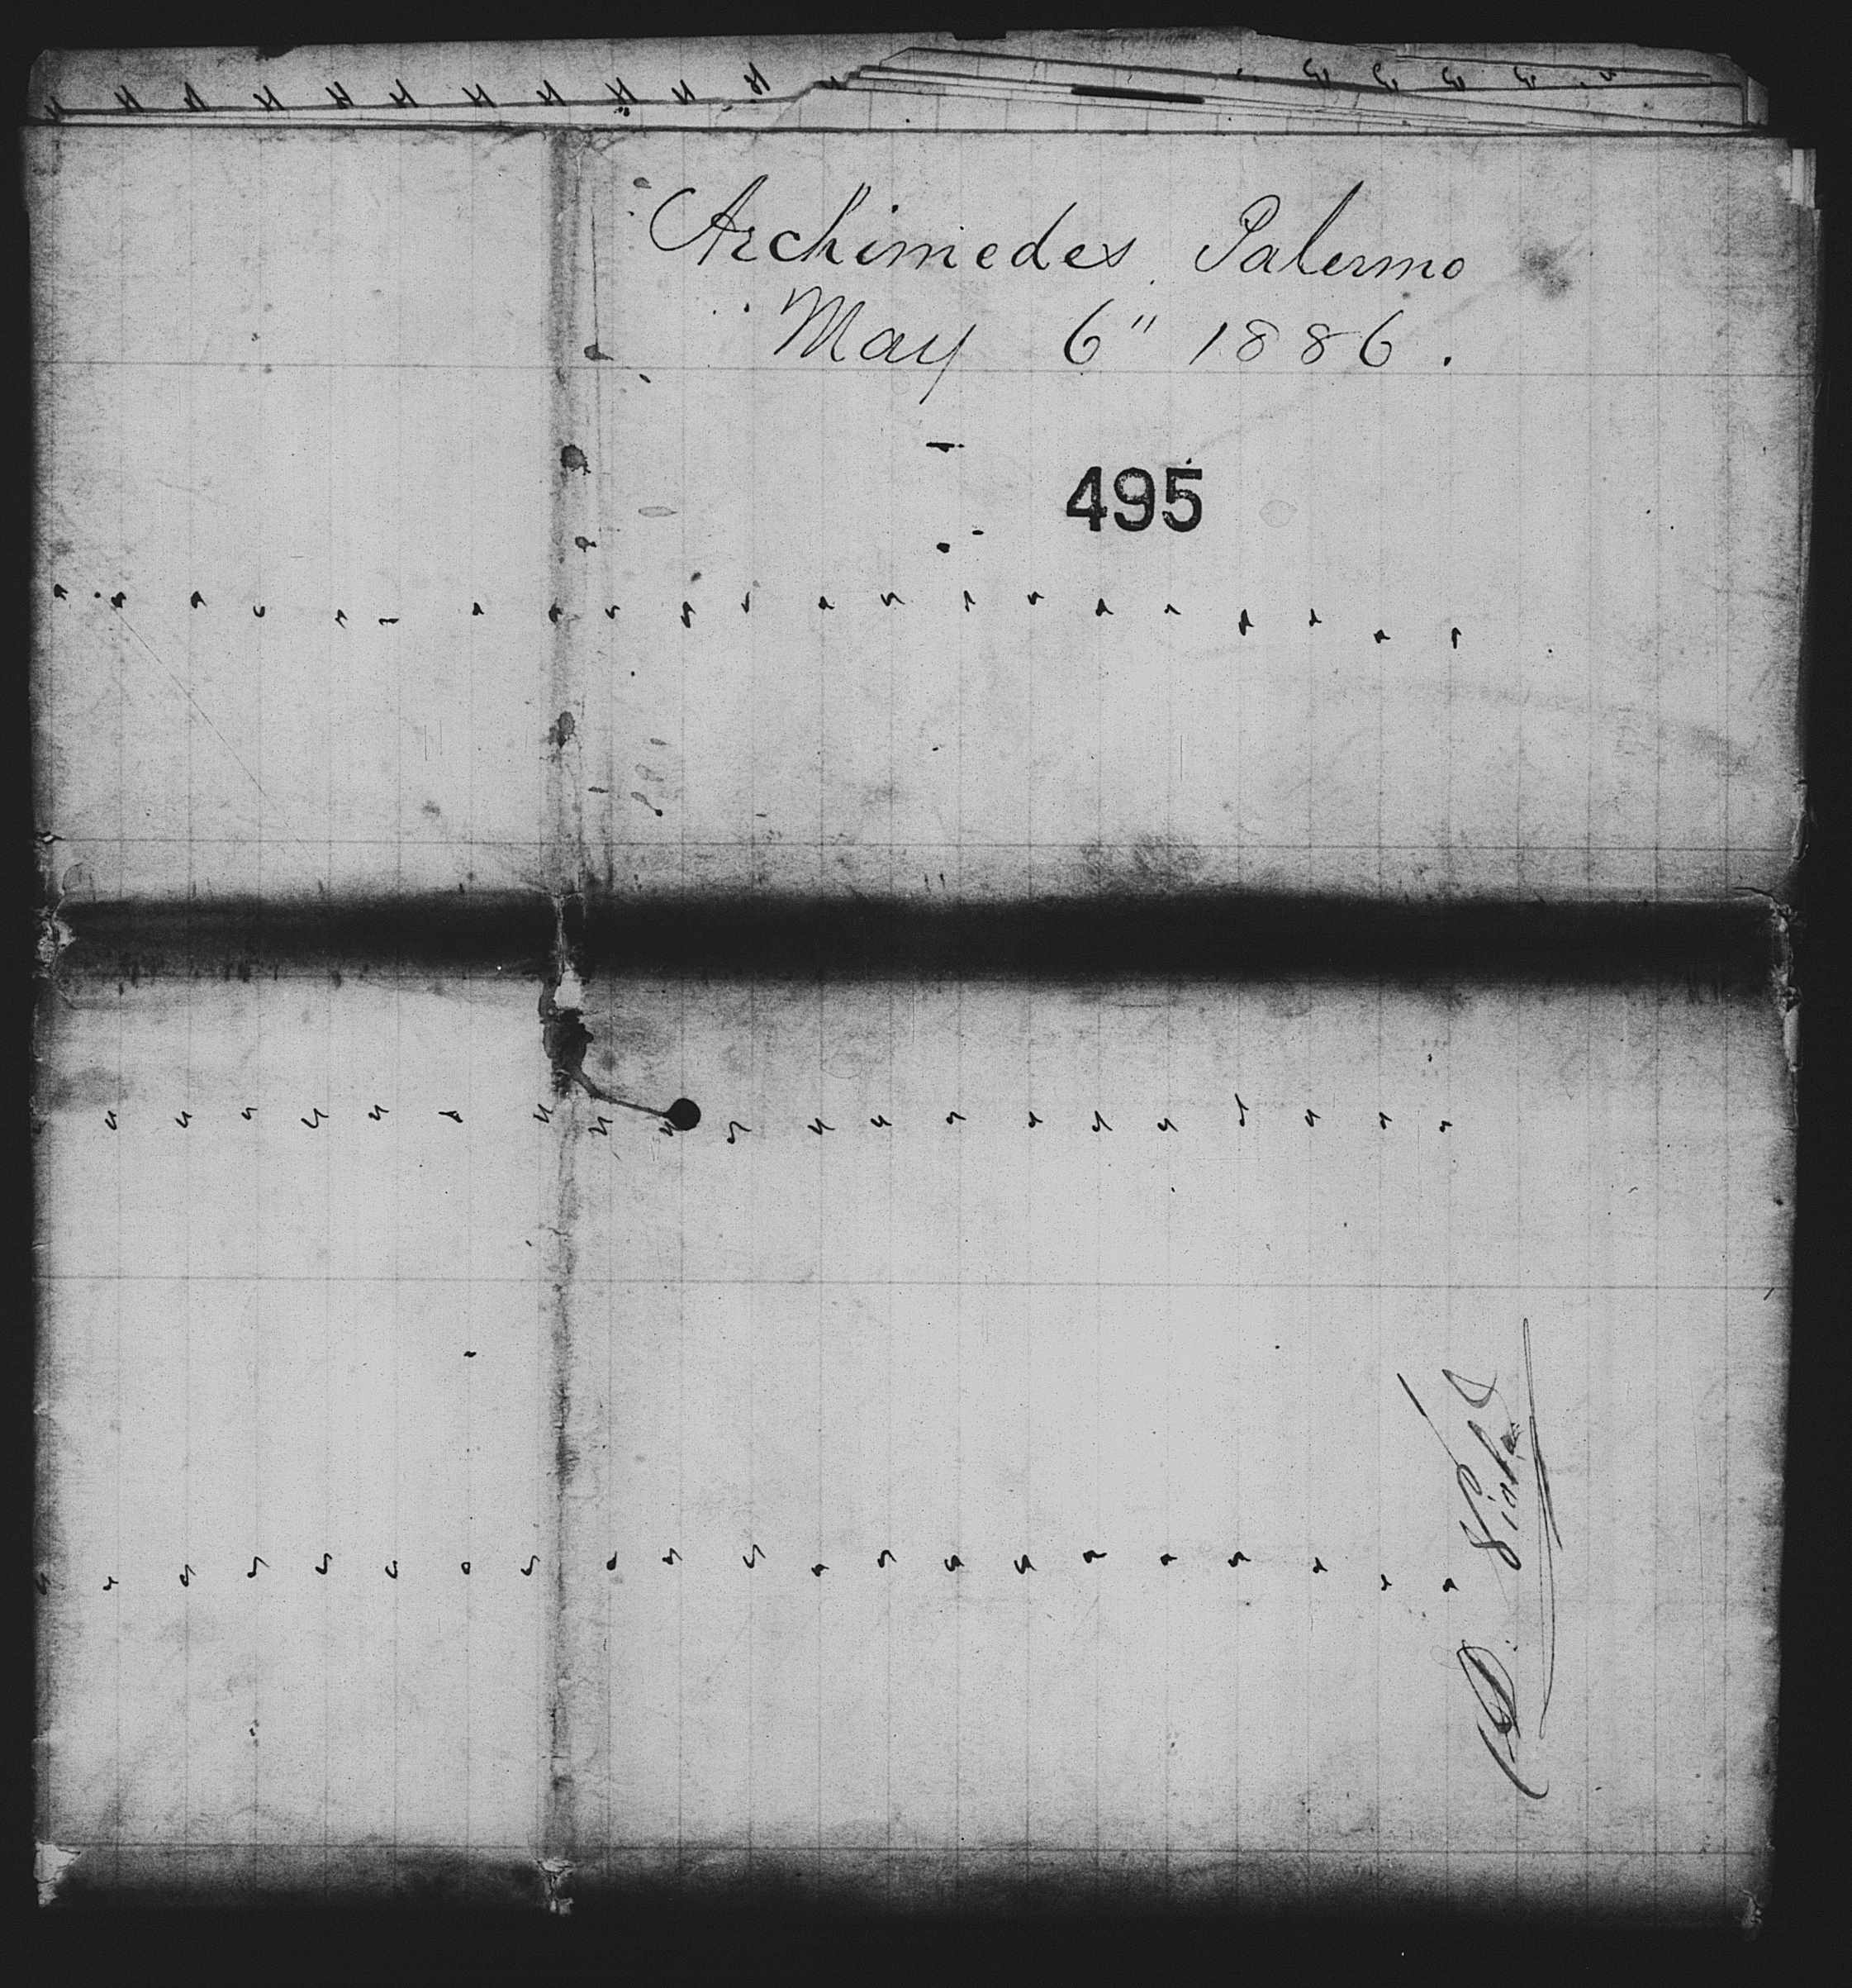 Archimedes Palermo
May 6" 1886.
495